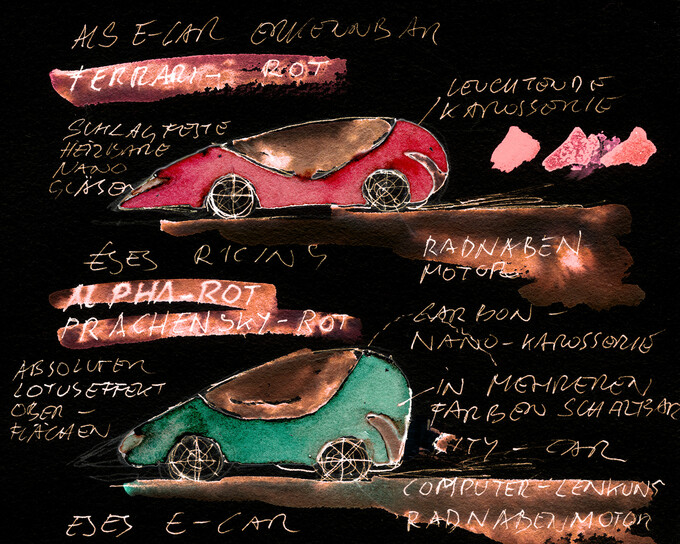 ALS E-CAR ERKENNBAR
FERRARI- ROT
LEUCHTENDE
KAROSSERIE
SCHLAGFESTE
HEIZBARE
NANO
GLÄSER
EJES RICING
RADNABEN
MOTOR
ALPHA ROT
PRACHENSKY-ROT
CARBON-
NANO-KAROSSERIE
ABSOLUTER
LOTUSEFFEKT
OBER-
FLÄCHEN
IN MEHREREN
FARBEN SCHALTBAR
CITY-CAR
COMPUTER-LENKUNG
RADNABENMOTOR
EJES E-CAR